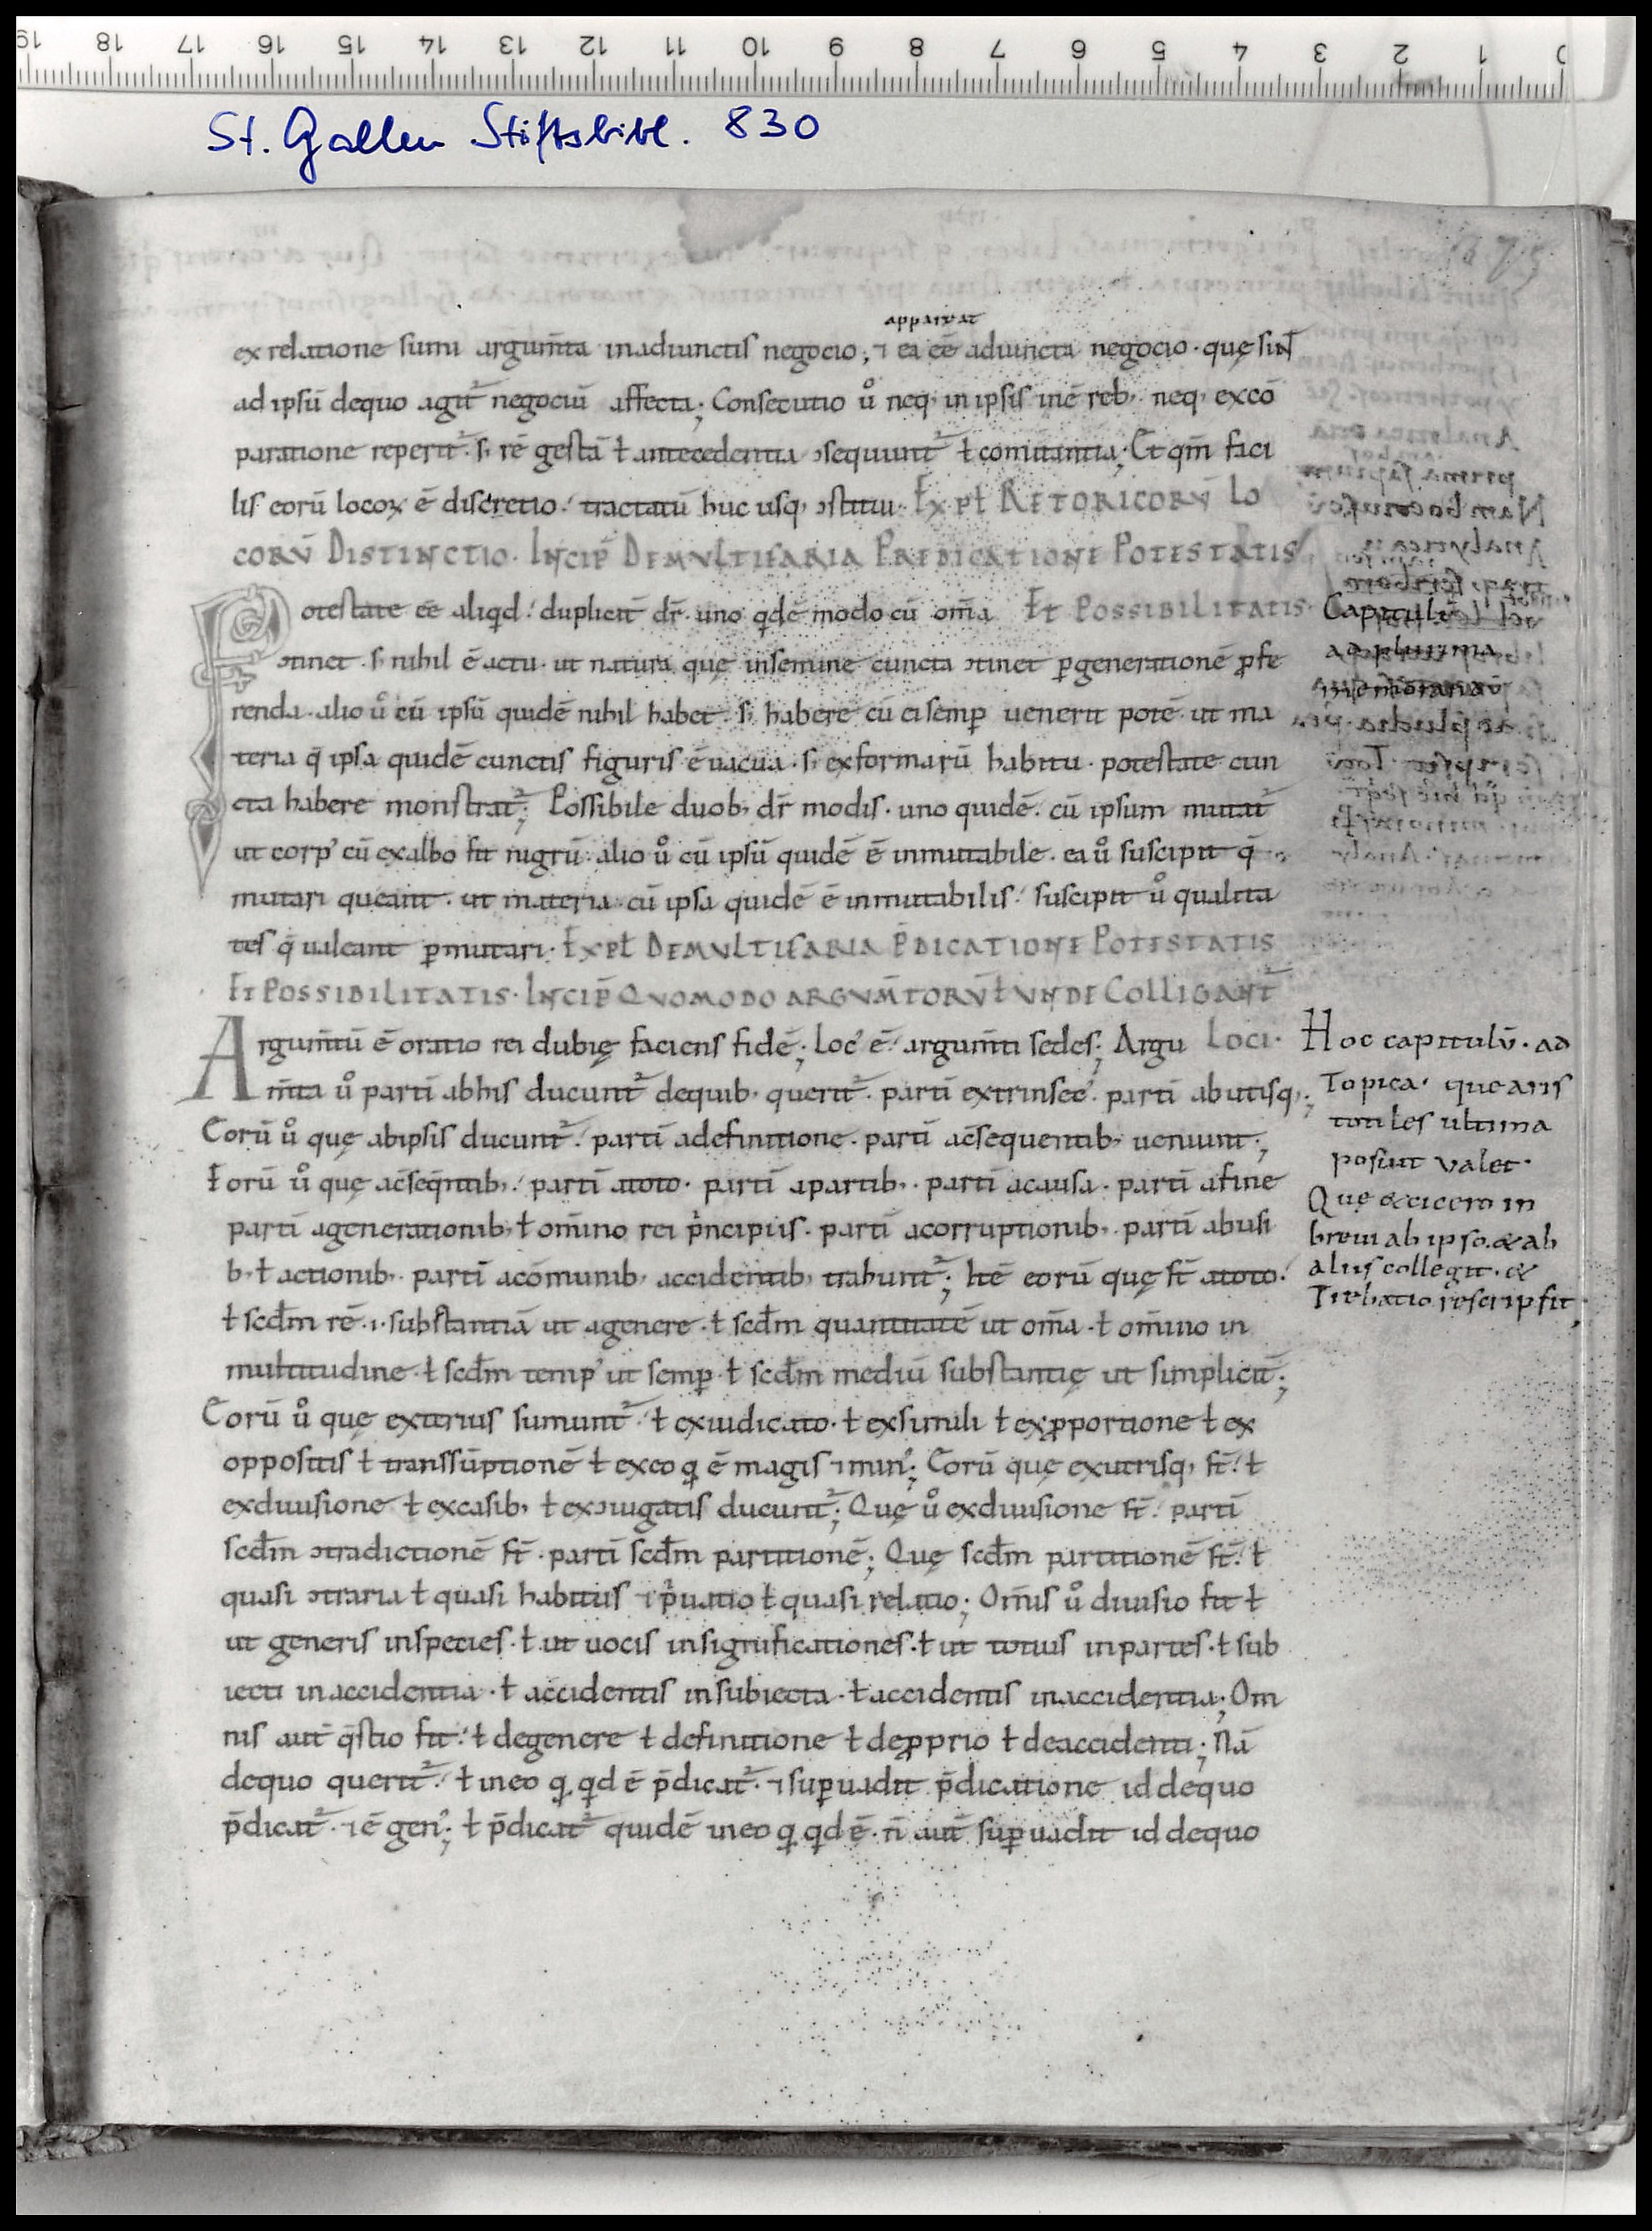 St. Gallen Stiftsbibl. 830
apparuat
ex relatione sumi argum̄ta inadiunctis negocio; ⁊ ea eē adiuncta negocio · quę sint
ad ipsū dequo agit᷑ negociū affecta; Consecutio ů neq; in ipsis inē reb; neq; excō
paratione reperit᷑ · s; rē gestā ł antecedentia ↄsequunt᷑ ł comitantia; Et qm̄ faci
lis eorū locoꝝ ē discretio · tractatū huc usq; ↄstitui · Expł Retoricorū Lo
corū Distinctio · Incip̄ Demultifaria Predicatione Potestatis
Potestate eē aliqd · duplicit̄ dr̄ · uno qdē modo cū om̄a Et Possibilitatis ·
ↄtinet · s; nihil ē actu · ut natura quę insemine cuncta ↄtinet ꝑgenerationē ꝓfe
renda · alio ů cū ipsū quidē nihil habet · s; habere cū ei semꝑ uenerit potē · ut ma
teria q̄ ipsa quidē cunctis figuris ē uacua · s; exformarū habitu · potestate cun
cta habere monstrat᷑; Possibile duob; dr̄ modis · uno quidē · cū ipsum mutat᷑
ut corp' cū exalbo fit nigrū · alio ů cū ipsū quidē ē inmutabile · ea ů suscipit q̄
mutari queant · ut materia · cū ipsa quidē ē inmutabilis · suscipit ů qualita
tes q̄ ualeant ꝑmutari · Expł Demultifaria P̄dicatione Potestatis
Et Possibilitatis · Incip̄ Quomodo argum̄torū ł unde Colligant᷑
Argum̄tū ē oratio rei dubię faciens fidē; Loc' ē · argum̄ti sedes; Argu Loci ·
m̄ta ů partī abhis ducunt᷑ dequib; querit᷑ · partī extrinsec' · partī abutisq;;
Eorū ů quę abipsis ducunt᷑ · partī adefinitione · partī acↄ̄sequentib; ueniunt;
Eorū ů quę acↄ̄seq̄ntib; · partī atoto · partī apartib; · partī acausa · partī afine
partī agenerationib; ł om̄ino rei pⁱncipiis · partī acorruptionib; · partī abusi
b; ł actionib; · partī acōmunib; accidentib; trahunt᷑; Itē eorū quę st̄ atoto ·
ł scd̄m rē · ı · substantiā ut agenere · ł scd̄m quantitatē ut om̄a · ł om̄ino in
multitudine · ł scd̄m temp' ut semꝑ · ł scd̄m mediū substantię ut simplicit̄;
Eorū ů quę exterius sumunt᷑ · ł exiudicato · ł exsimili ł exꝓportione ł ex
oppositis ł transsūptionē ł exeo q̨ ē magis ⁊ min'; Eorū quę exutrisq; st̄ · ł
exdiuisione ł excasib; ł exↄiugatis ducunt᷑; Quę ů exdiuisione st̄ · partī
scd̄m ↄtradictionē st̄ · partī scd̄m partitionē; Quę scd̄m partitionē st̄ · ł
quasi ↄtraria ł quasi habitus ⁊ pⁱuatio ł quasi relatio; Om̄is ů diuisio fit ł
ut generis inspecies · ł ut uocis insignificationes · ł ut totius inpartes · ł sub
iecti inaccidentia · ł accidentis insubiecta · ł accidentis inaccidentia; Om
nis aut̄ q̄stio fit · ł degenere ł definitione ł deꝓprio ł deaccidenti; Nā
dequo querit᷑ · ł ineo q̨ qd ē p̄dicat᷑ · ⁊ suꝑuadit p̄dicatione id dequo
p̄dicat᷑ · ⁊ ē gen'; ł p̄dicat᷑ quidē ineo q̨ qd ē · n̄ aut̄ suꝑuadit id dequo
Capitulū
ad plurima
Hoc capitulū · ad
Topica · que aris
totiles ultima
posuit valet ·
Que & cicero in
breui ab ipso & ab
aliis collegit · &
Trebatio rescripsit;